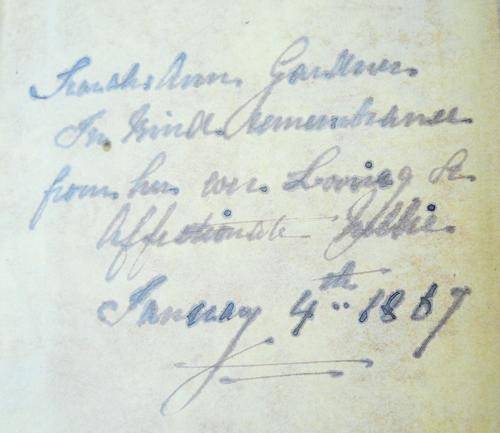 Sarah Ann Gardner.
In kind remembrance
from her ever Loving &
Affectionate
January 4th